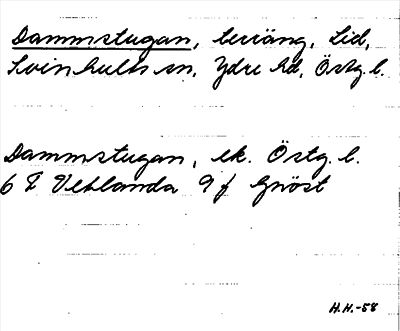 Dammstugan, teräng, Lid,
Svinhults sn, Ydre hd, Östg. l.
Dammstugan, ek. Östg. l.
6 F Vetlanda 9 f Gnöst
H.H.-58